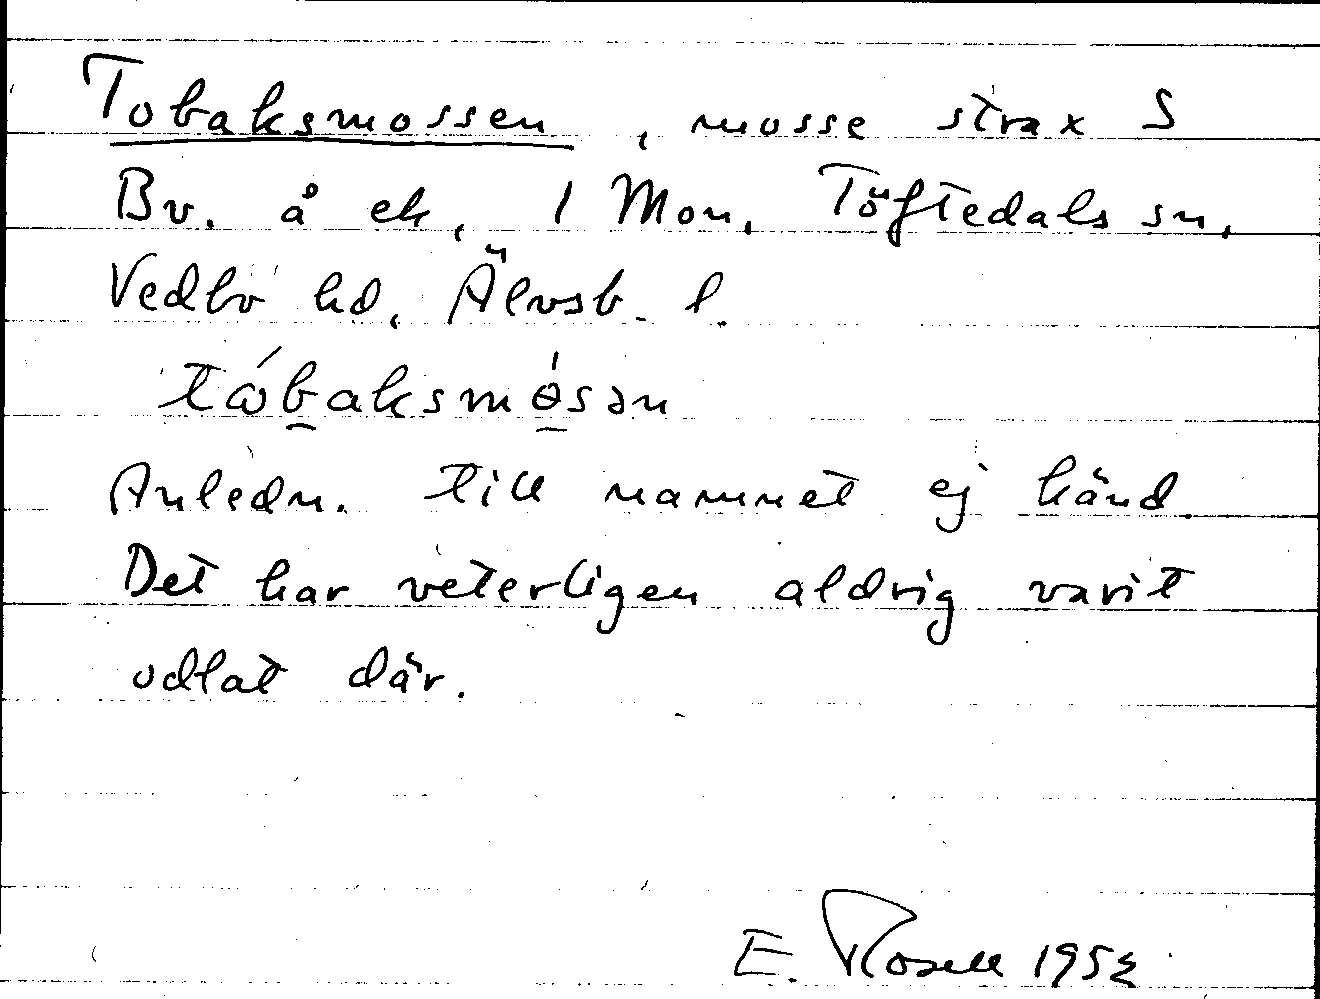 Tobaksmossen, mosse strax S
Bv. å ek, 1 Mon, Töftedals sn,
Vedbo hd, Älvsb. l.
Anledn. till namnet ej känd.
Det har veterligen aldrig varit
odlat där.
E. Rosell 195